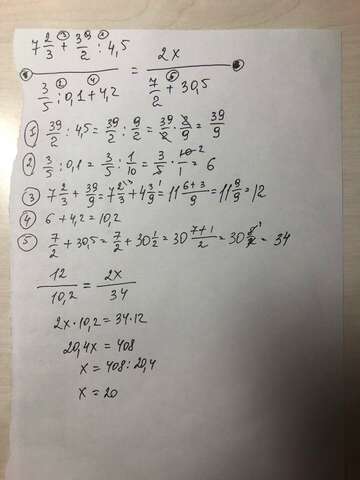 7 2/3 + 39/2 : 4,5 = 2x
3/5 : 0,1 + 4,2   7/2 + 30,5
① 39/2 : 4,5 = 39/2 : 9/2 = 39/2 · 2/9 = 39/9
② 3/5 : 0,1 = 3/5 : 1/10 = 3/5 · 10/1 2 = 6
③ 7 2/3 + 39/9 = 7 2/3 + 4 3/9 = 11 6+3/9 = 11 9/9 = 12
④ 6 + 4,2 = 10,2
⑤ 7/2 + 30,5 = 7/2 + 30 1/2 = 30 7+1/2 = 30 8/2 = 34
12/10,2 = 2x/34
2x · 10,2 = 34 · 12
20,4x = 408
x = 408 : 20,4
x = 20